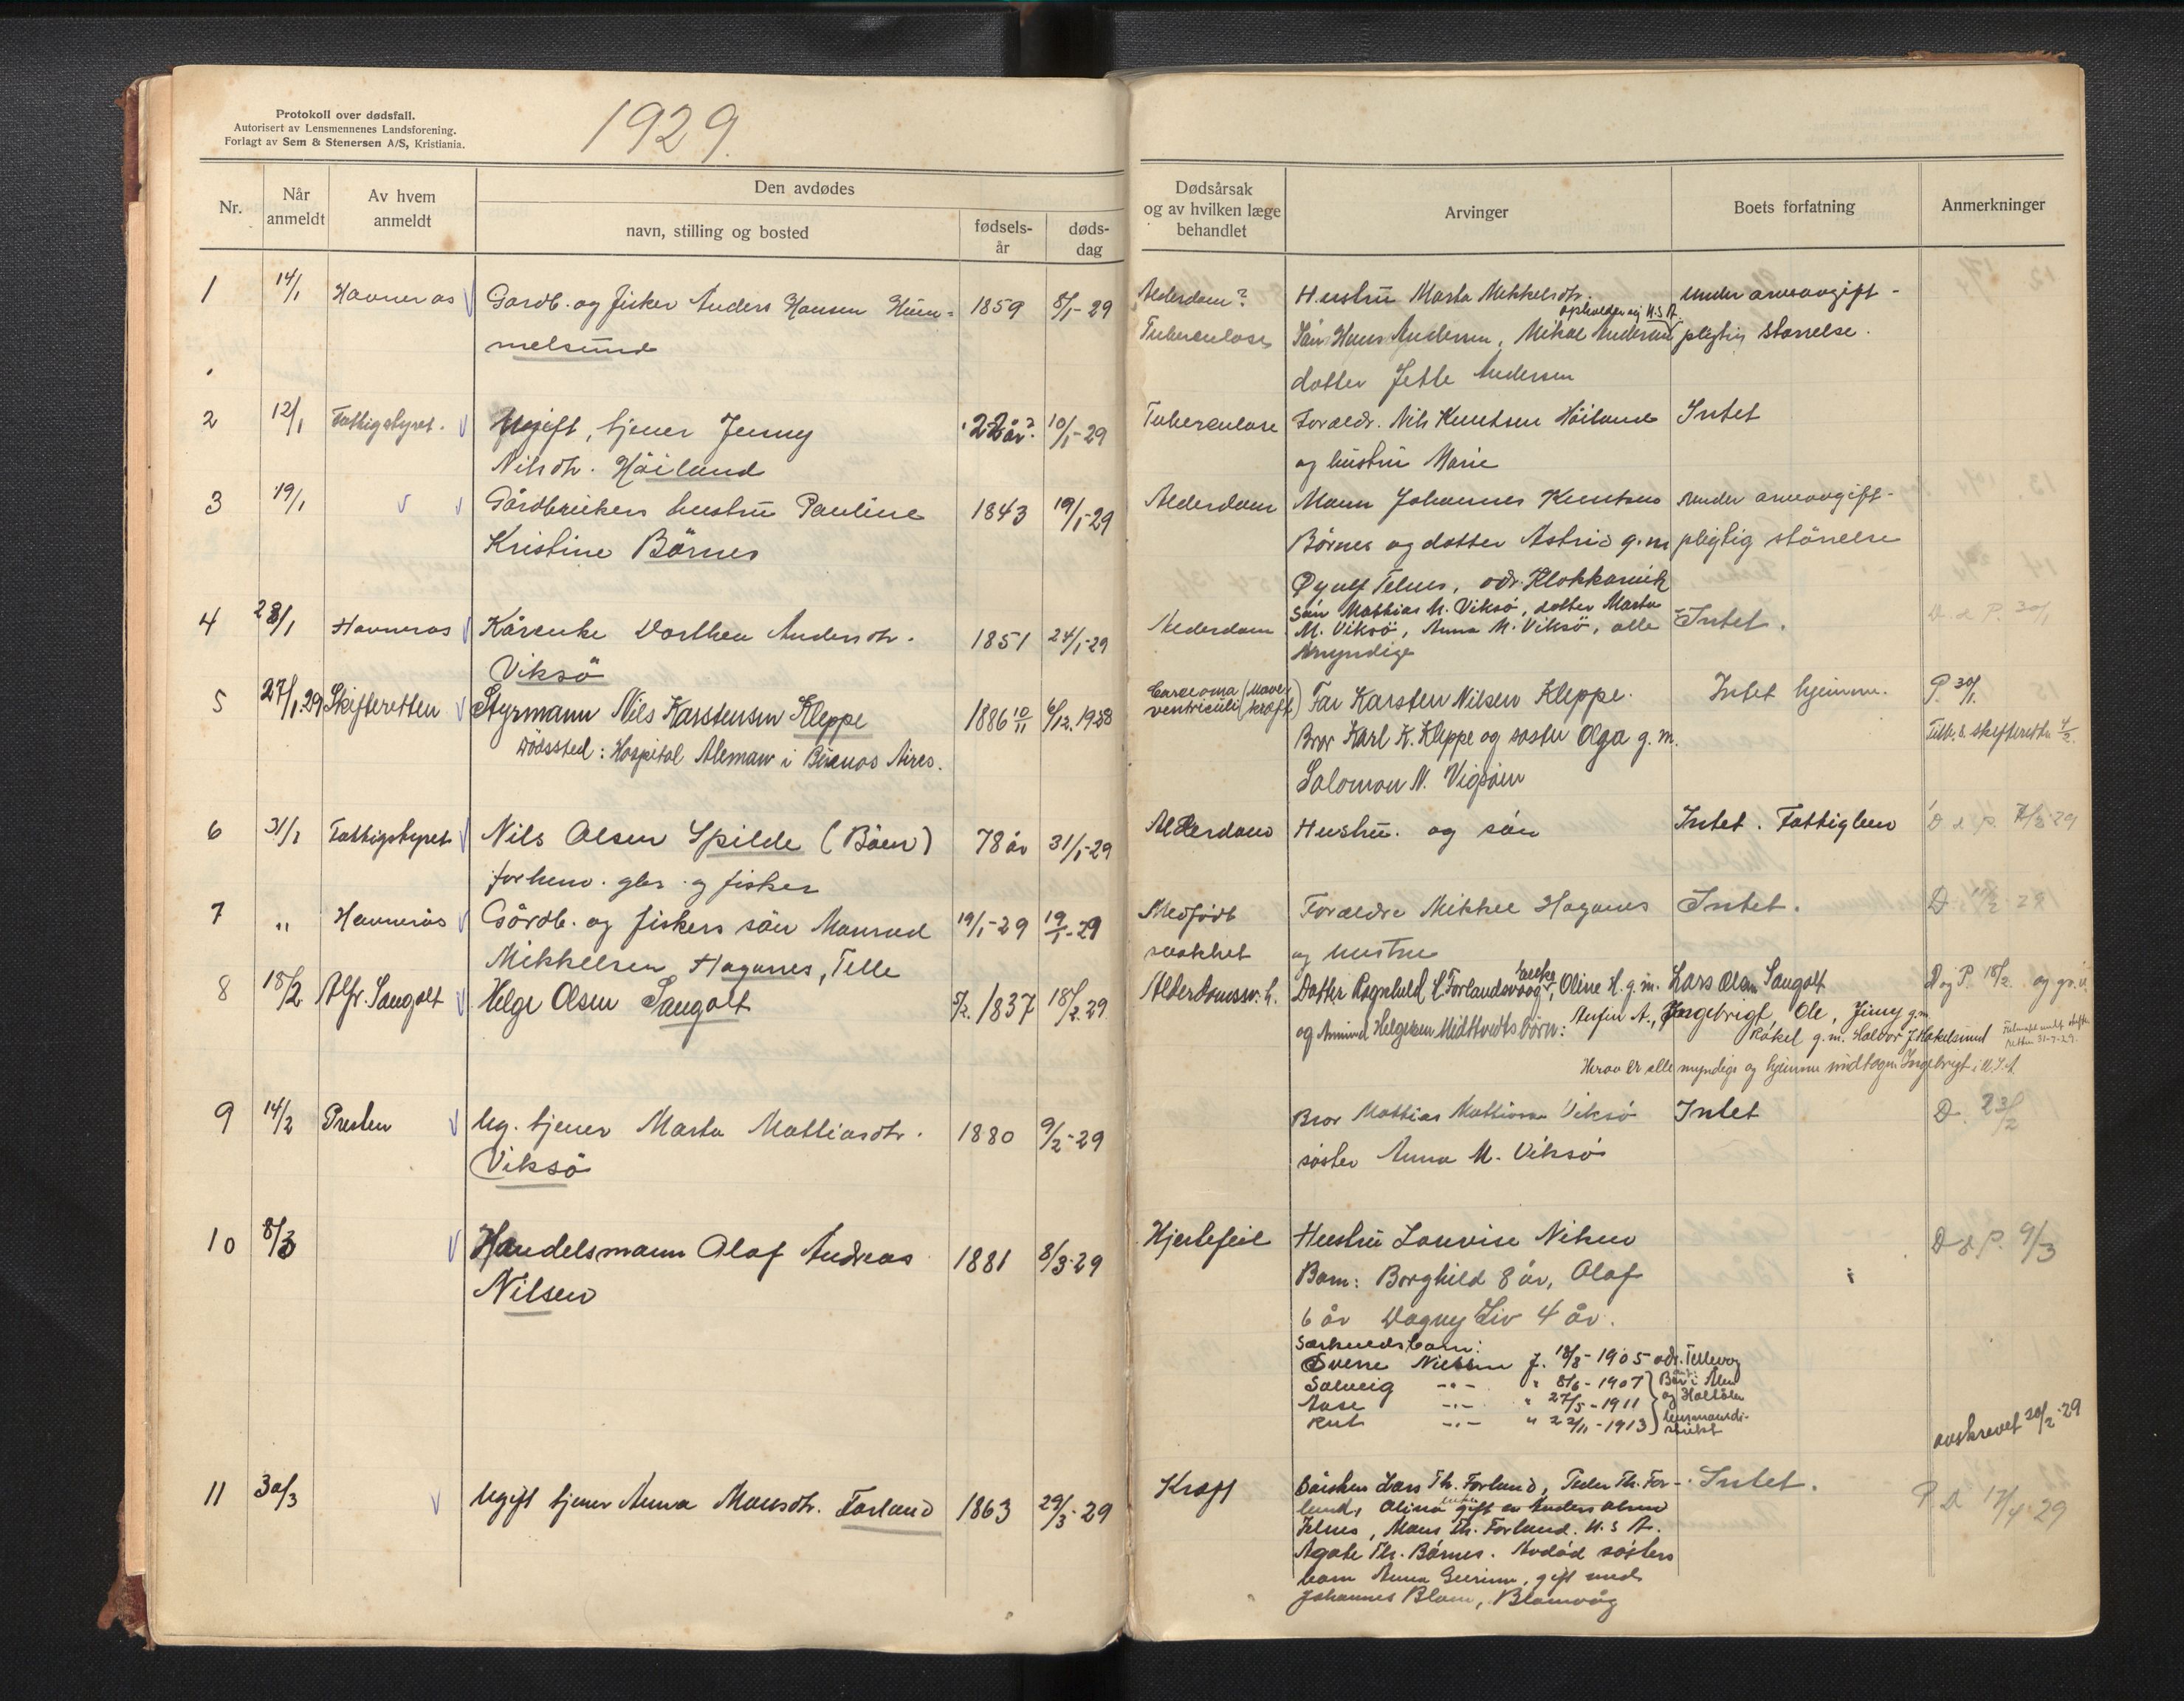 Protokoll over dødsfall.
Autorisert av Lensmennenes Landsforening.
Forlagt av Sem & Stenersen A/S, Kristiania.
1929.
Nr.
Når anmeldt
Av hvem anmeldt
Den avdødes
navn, stilling og bosted
fødselsår
dødsdag
Dødsårsak og av hvilken læge behandlet
Arvinger
Boets forfatning
Anmerkninger
1 14/1 Havneraas Gardb. og fisker Anders Hansen Hum- 1859 8/1-29 Alderdom? Hustru Marta Mikkelsdtr. under arveavgift-
opholder sig U.S.A.
melsund Tuberculose Sön Hans Andersen, Mikal Andersen pligtig størrelse.
datter Jette Andersen
2 12/1 Fattigstyret. Ugift, tjener Jenny 22 år? 10/1-29 Tuberculose Foreldr. Nils Knutsen Höiland Intet
Nilsdtr. Höiland og hustru Marie
3 19/1 Gårdbrukers hustru Pauline 1843 19/1-29 Alderdom Mann Johannes Knutsen under arveavgift-
Kristine Börnes Börnes og datter Astrid g.m. pligtig störrelse
Øyulf Telnes, adr. Klokkarvik
4 28/1 Havneraas Kårenke Dorthea Andersdtr. 1851 24/1-29 Alderdom Sön Mathias M. Viksö, datter Marta Intet. D. & P. 30/1
Viksö M. Viksö, Anna M. Viksö, alle
myndige
5 27/1.29 Skifteretten Styrmann Nils Karstensen Kleppe 1886 10/11 6/12.1928 Carcioma ventriculi (Mave kræft) Far Karsten Nilsen Kleppe. Intet hjemme. P. 30/1.
Dödssted: Hospital Aleman i Buenos Aires. Bror Karl K. Kleppe og søster Olga g.m. Tilb. s. skifteretten 4/2.
Salomon N. Vigsöen
6 31/1 Fattigstyret Nils Olsen Spilde (Böen) 78 år 31/1-29 Alderdom Hustru. og sön Intet. Fattiglem D & P.
forhenv. gbr. og fisker
7 " Havnerås Gårdb. og fiskers sön Monrad 19/1-29 19/1-29 Medfödt Forældre Mikkel Haganes Intet. D.
Mikkelsen Haganes, Telle svakhet og hustru
8 18/2 Alfr. Sangolt Helge Olsen Sangolt 5/2. 1837 18/2.29 Alderdomssv.h. Datter Ragnhild Forlandsvaag, Oline H. g.m. Lars Olsen Sangolt D og P. 18/2.
enke
og Anmund Helgesen Midttvedts börn: Anfin A., Ingebrigt, Ole, Jenny g.m.
Råkel g.m. Haldor J. Hakelsund
Herav er alle myndige og hjemme undtagen Ingebrigt i U.S.A.
9 14/2 Presten Ug. tjener Marta Mattiasdtr. 1880 9/2-29 Bror Mathias Mathiasen Viksö Intet D. 23/2
Viksö söster Anna M. Viksö
10 8/3 Handelsmann Olaf Andreas 1881 8/3.29 Hjertefeil Hustru Lovise Nilsen D & P. 9/3
Nilsen Barn: Borghild 8 år, Olaf
6 år Dagny Liv 4 år.
Særkuldsbarn:
Sverre Nielsen f. 18/8-1905 adr. Tellevåg
Solveig -"- " 8/6-1907
Aase -"- " 27/5-1911 og Holtålen
Rut -"- " 22/11-1913 lensmannsdistrikt
avskrevet 20/2-29
11 30/3 Ugift tjener Anna Monsdtr. Forland 1863 29/3.29 Kræft Søsken Lars Th. Forland, Peder Th. For- Intet. P. D 17/4.29
land, Olina gift Anders Olsen
Telnes, Mons Th. Forland. U.S.A.
Agate Th. Börnes. Avdöd søsters
barn Anna, gift med
Johannes Blom, Blomvåg